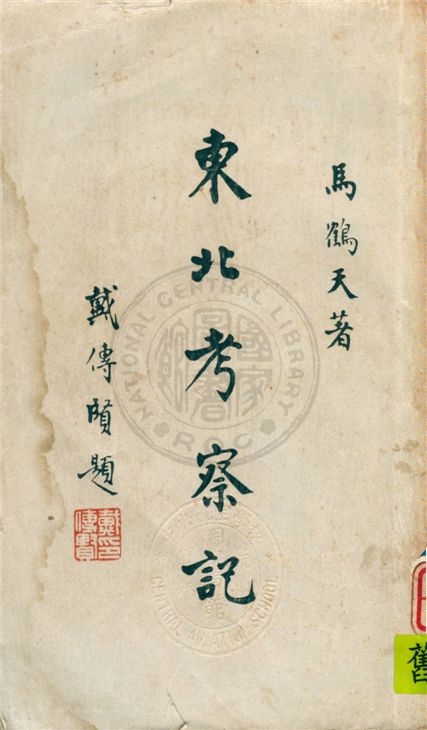 馬鶴天著
東北考察記
戴傳賢題
戴傳賢印
NATIONAL CENTRAL LIBRARY
R.O.C
國家圖書館
CENTRAL AVIATION SCHOOL
舊